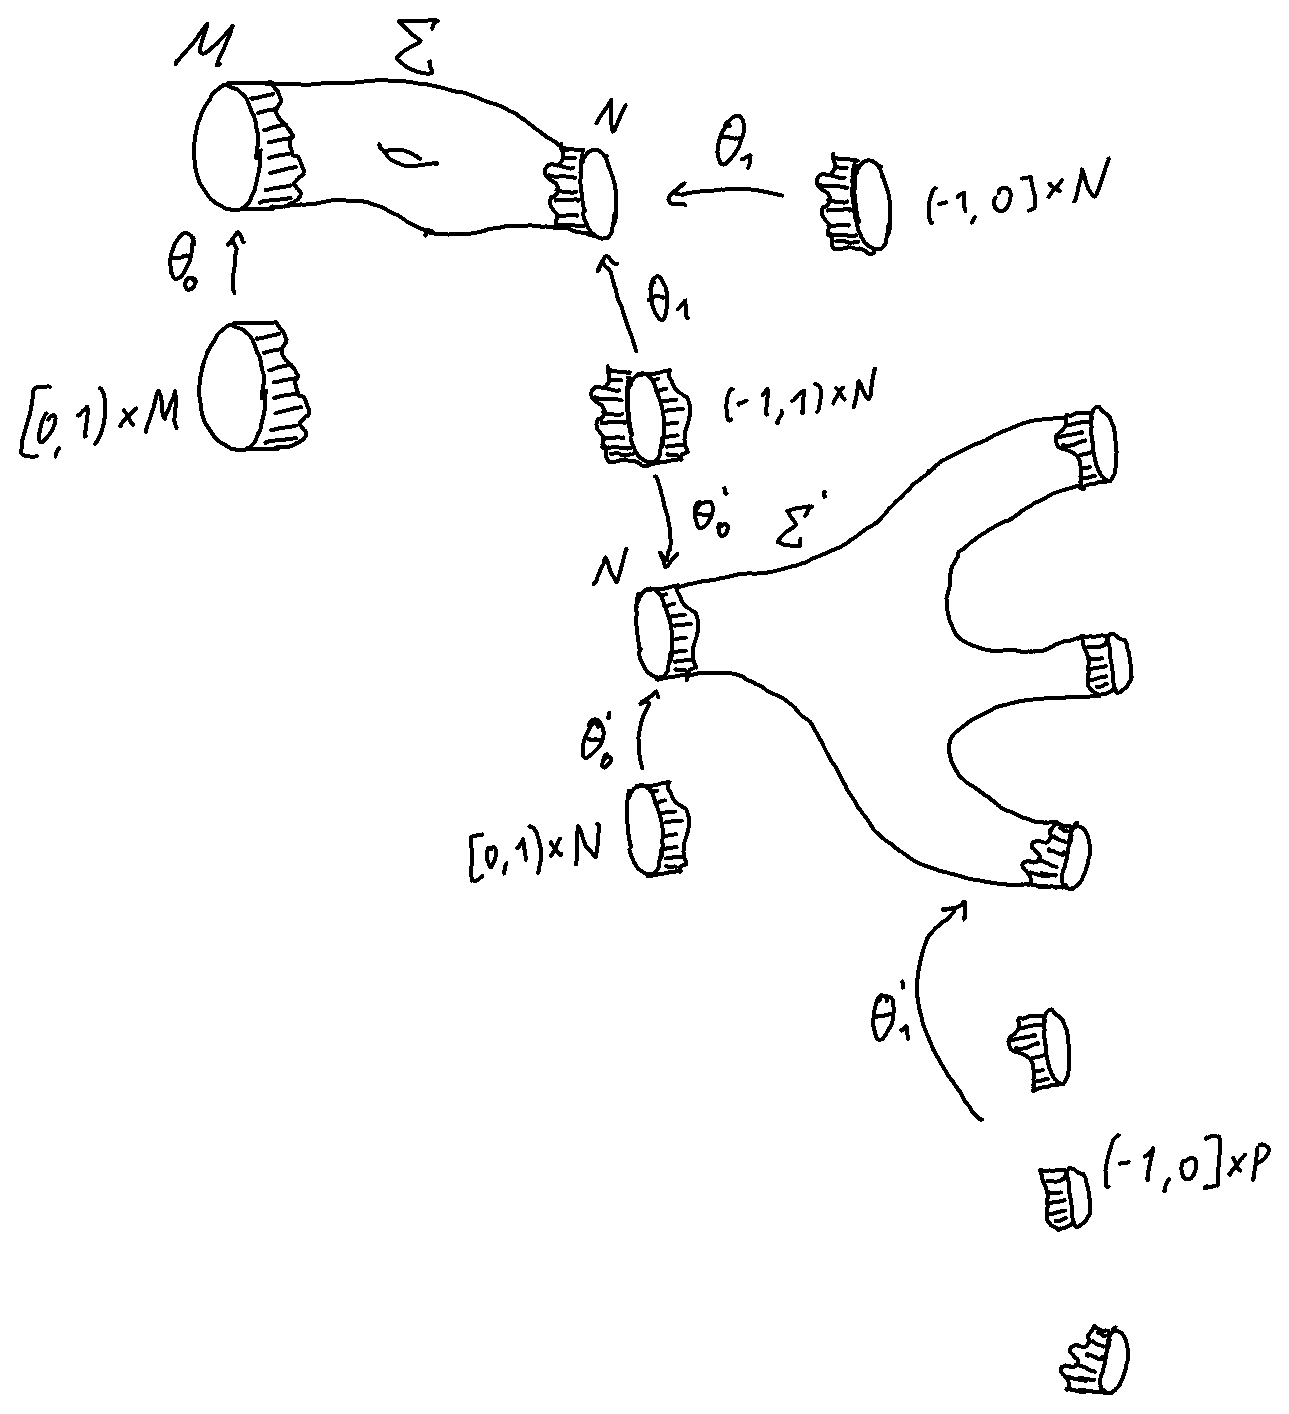 M
Σ
N
θ₁
(-1, 0] × N
θ₀
θ₁
[0, 1) × M
(-1, 1) × N
θ₀'
Σ'
N
θ₀'
[0, 1) × N
θ₁'
(-1, 0] × P